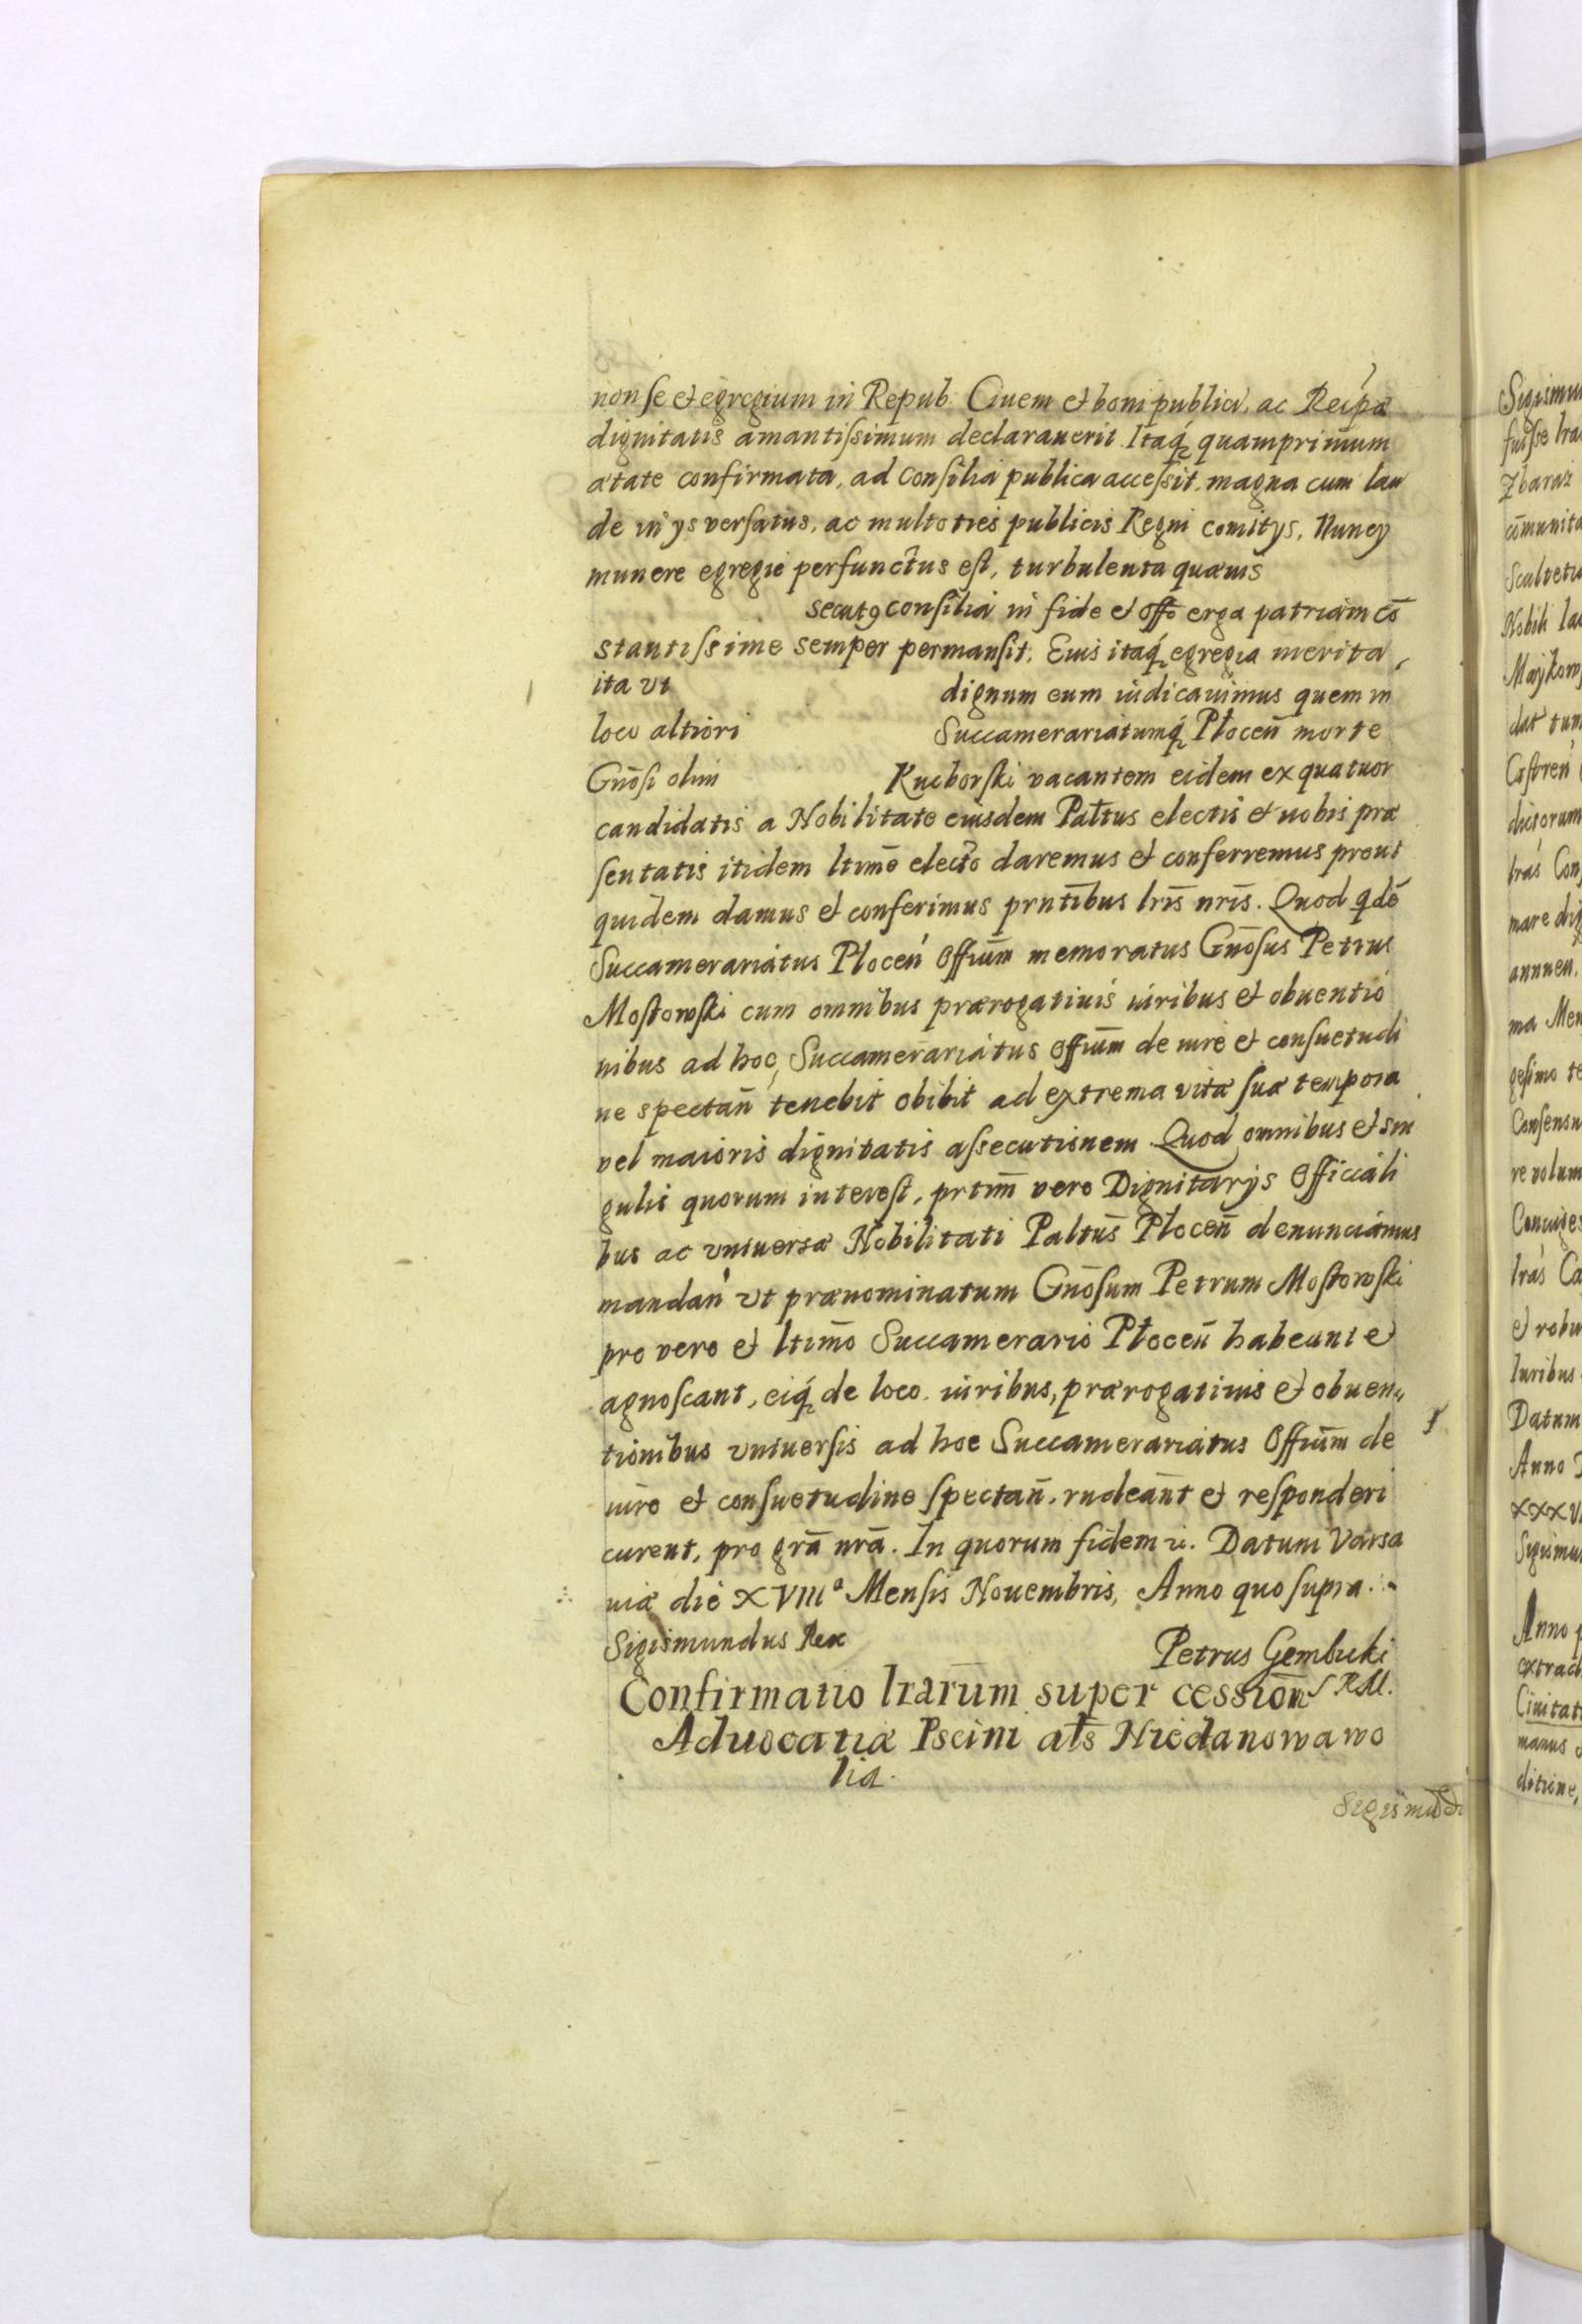 non se et egregium in Repub: Ciuem et boni publici, ac Reipȩ
dignitatis amantissimum declarauerit. Itaq́ quamprimum
ætate confirmata, ad consilia publica accessit, magna cum lau
de in ys versatus, ac multoties publicis Regni comitys, Nuncy
munere egregie perfunctus est, turbulenta quæuis
secutꝰ consilia in fide et offo erga patriam cō
stantissime semper permansit. Eius itaq́ egregia merita,
ita vt dignum eum iudicauimus quem in
loco altiori Succamerariatumq́ Płocen̄ morte
Gnōsi olim Kucborski vacantem eidem ex quatuor
candidatis a Nobilitate eiusdem Paltus electis et nobis præ
sentatis itidem ltimē electo daremus et conferremus prout
quidem damus et conferimus prntibus lrīs nrīs. Quod qdē
Succamerariatus Płocen̄ Offium̄ memoratus Gnōsus Petrus
Mostowski cum omnibus prærogatiuis iuribus et obuentio
nibus ad hoc Succamerariatus offium̄ de iure et consuetudi
ne spectan̄ tenebit obibit ad extrema vitæ suæ tempora
vel maioris dignitatis assecutionem. Quod omnibus et sin
gulis quorum interest, prtim̄ vero Dignitarys Officiali
bus ac vniuersæ Nobilitati Paltus̄ Płocen̄ denunciamus
mandan̄ vt prænominatum Gnōsum Petrum Mostowski
pro vero et ltimō Succamerario Płocen̄ habeant et
agnoscant, eiq́ de loco iuribus, prærogatiuis et obuen
tionibus vniuersis ad hoc Succamerariatus Offium̄ de
iure et consuetudine spectan̄, rndeānt et responderi
curent, pro grā nrā. In quorum fidem etc. Datum Varsa
uiæ die XVIIIa Mensis Nouembris, Anno quo supra.
Sigismundus Rex Petrus Gembicki
Confirmatio lrarūm super cession̄ S R M.
Aduocatiæ Pscini als̄ Niedanowa wo
lia.
Sigismūd